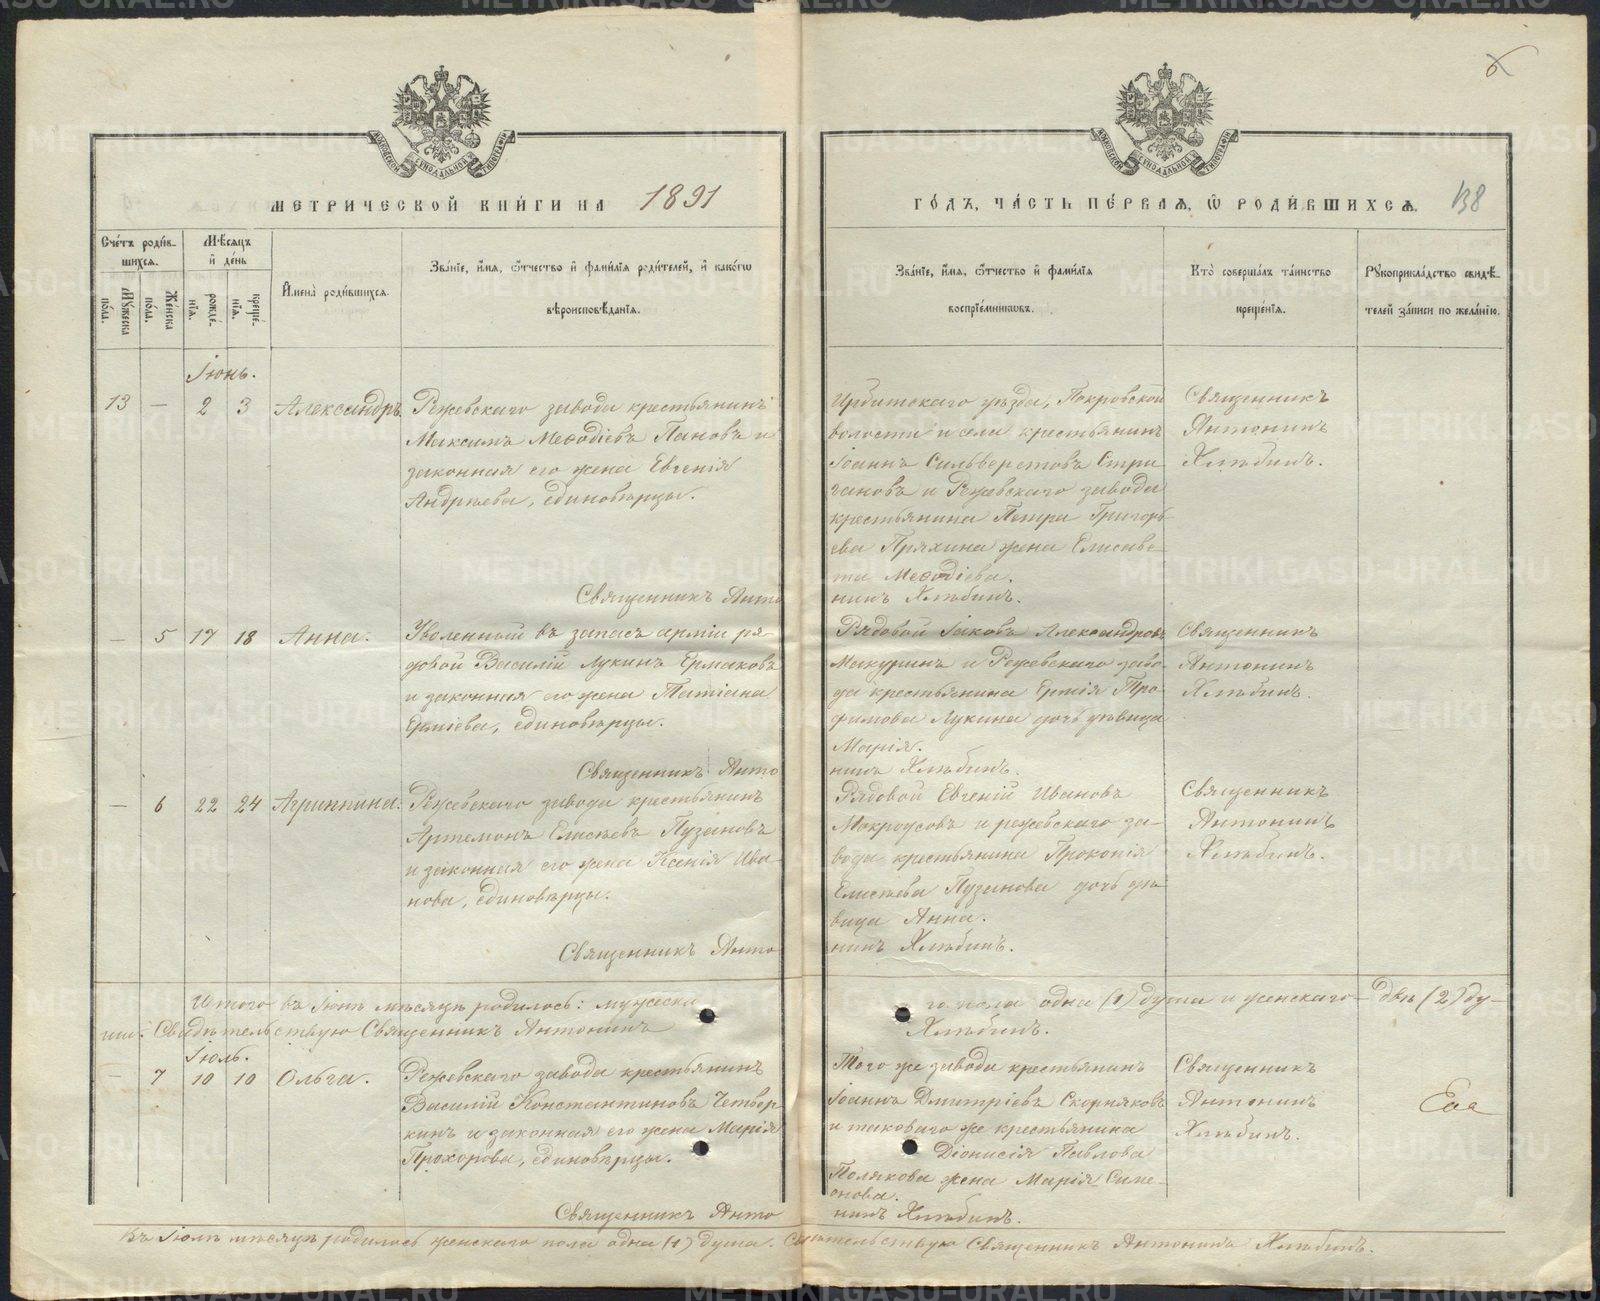 6
МОСКОВСКОЙ СѴНОДАЛЬНОЙ ТИПОГРАФІИ
МОСКОВСКОЙ СѴНОДАЛЬНОЙ ТИПОГРАФІИ
МЕТРИЧЕСКОЙ КНИ́ГИ НА 1891
ГО́ДЪ, ЧА́СТЬ ПЕ́РВАЯ, Ѡ РОДИ́ВШИХСЯ. 138
Сче́тъ роди́в-
шихся.
Мѣ́сяцъ
и де́нь
Му́жеска
по́ла.
Же́нска
по́ла.
рожде́-
нія.
креще́-
нія.
Имена̀ роди́вшихся.
Зва́ніе, и́мя, ѻ҆́тчество и фами́лія роди́телей, и како́гѡ
вѣроисповѣ́данія.
Зва́ніе, и́мя, ѻ҆́тчество и фами́лія
воспріе́мниковъ.
Кто̀ соверша́лъ та́инство
креще́нія.
Рукоприкла́дство свидѣ́-
телей за́писи по жела́нію.
Іюнь.
13 — 2 3 Александръ
Режевскаго завода крестьянинъ
Максимъ Меѳодіевъ Пановъ и
законная его жена Евгенія
Андреева, единовѣрцы.
Ирбитскаго уѣзда, Покровской
волости и села крестьянинъ
Іоаннъ Сильверстовъ Стри
гановъ и Режевскаго завода
крестьянина Петра Григорь
ева Пряхина жена Елисаве-
та Меѳодіева.
Священникъ
Антонинъ
Хлѣбинъ.
Священникъ Анто
нинъ Хлѣбинъ.
— 5 17 18 Анна.
Уволенный въ запасъ арміи ря-
довой Василій Лукинъ Ермаковъ
и законная его жена Татіана
Ерміева, единовѣрцы.
Рядовой Іаковъ Александровъ
Макуринъ и Режевскаго заво-
да крестьянина Ермія Тро-
фимова Лукина дочь дѣвица
Марія.
Священникъ
Антонинъ
Хлѣбинъ.
Священникъ Анто
нинъ Хлѣбинъ.
— 6 22 24 Агриппина.
Режевскаго завода крестьянинъ
Артемонъ Елисѣевъ Пузановъ
и законная его жена Ксенія Ива-
нова, единовѣрцы.
Рядовой Евгеній Ивановъ
Мокроусовъ и режевскаго за-
вода крестьянина Прокопія
Елисѣева Пузанова дочь дѣ-
вица Анна.
Священникъ
Антонинъ
Хлѣбинъ.
Священникъ Анто
нинъ Хлѣбинъ.
Итого въ Іюнѣ мѣсяцѣ родилось: мужеска
го пола одна (1) душа и женскаго — двѣ (2) ду-
ши. Свидѣтельствую Священникъ Антонинъ
Хлѣбинъ.
Іюль.
— 7 10 10 Ольга.
Режевскаго завода крестьянинъ
Василій Константиновъ Четвер-
кинъ и законная его жена Марія
Прохорова, единовѣрцы.
Того же завода крестьянинъ
Іоаннъ Дмитріевъ Скорняковъ
и таковаго же крестьянина
Діонисія Павлова
Полякова жена Марія Симе-
онова.
Священникъ
Антонинъ
Хлѣбинъ.
Священникъ Анто
нинъ Хлѣбинъ.
Въ Іюлѣ мѣсяцѣ родилось женскаго пола одна (1) душа. Свидѣтельствую Священникъ Антонинъ Хлѣбинъ.
METRIKI.GASO-URAL.RU